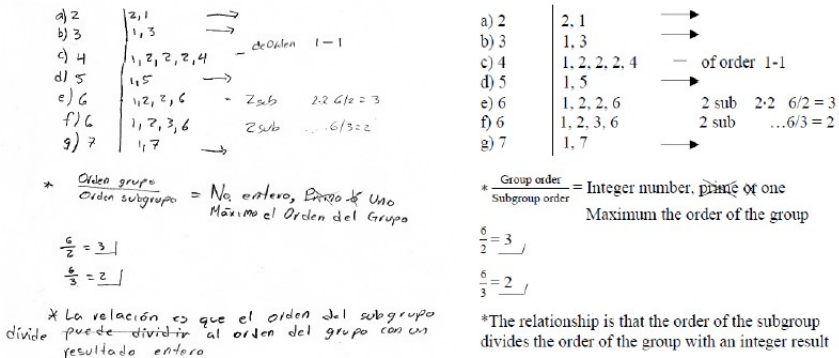 a) 2 | 2, 1 →
b) 3 | 1, 3 →
c) 4 | 1, 2, 2, 2, 4 – de Orden 1-1
d) 5 | 1, 5 →
e) 6 | 1, 2, 2, 6 - 2 sub 2·2 6/2 = 3
f) 6 | 1, 2, 3, 6 2 sub ....6/3=2
g) 7 | 1, 7 →
* Orden grupo / Orden subgrupo = No. entero, Primo ó Uno
Máximo el Orden del Grupo
6/2 = 3
6/3 = 2
* La relación es que el orden del subgrupo
divide puede dividir al orden del grupo con un
resultado entero
a) 2 | 2, 1 →
b) 3 | 1, 3 →
c) 4 | 1, 2, 2, 2, 4 — of order 1-1
d) 5 | 1, 5 →
e) 6 | 1, 2, 2, 6 2 sub 2·2 6/2 = 3
f) 6 | 1, 2, 3, 6 2 sub …6/3 = 2
g) 7 | 1, 7 →
* Group order / Subgroup order = Integer number, prime or one
Maximum the order of the group
6/2 = 3
6/3 = 2
*The relationship is that the order of the subgroup
divides the order of the group with an integer result